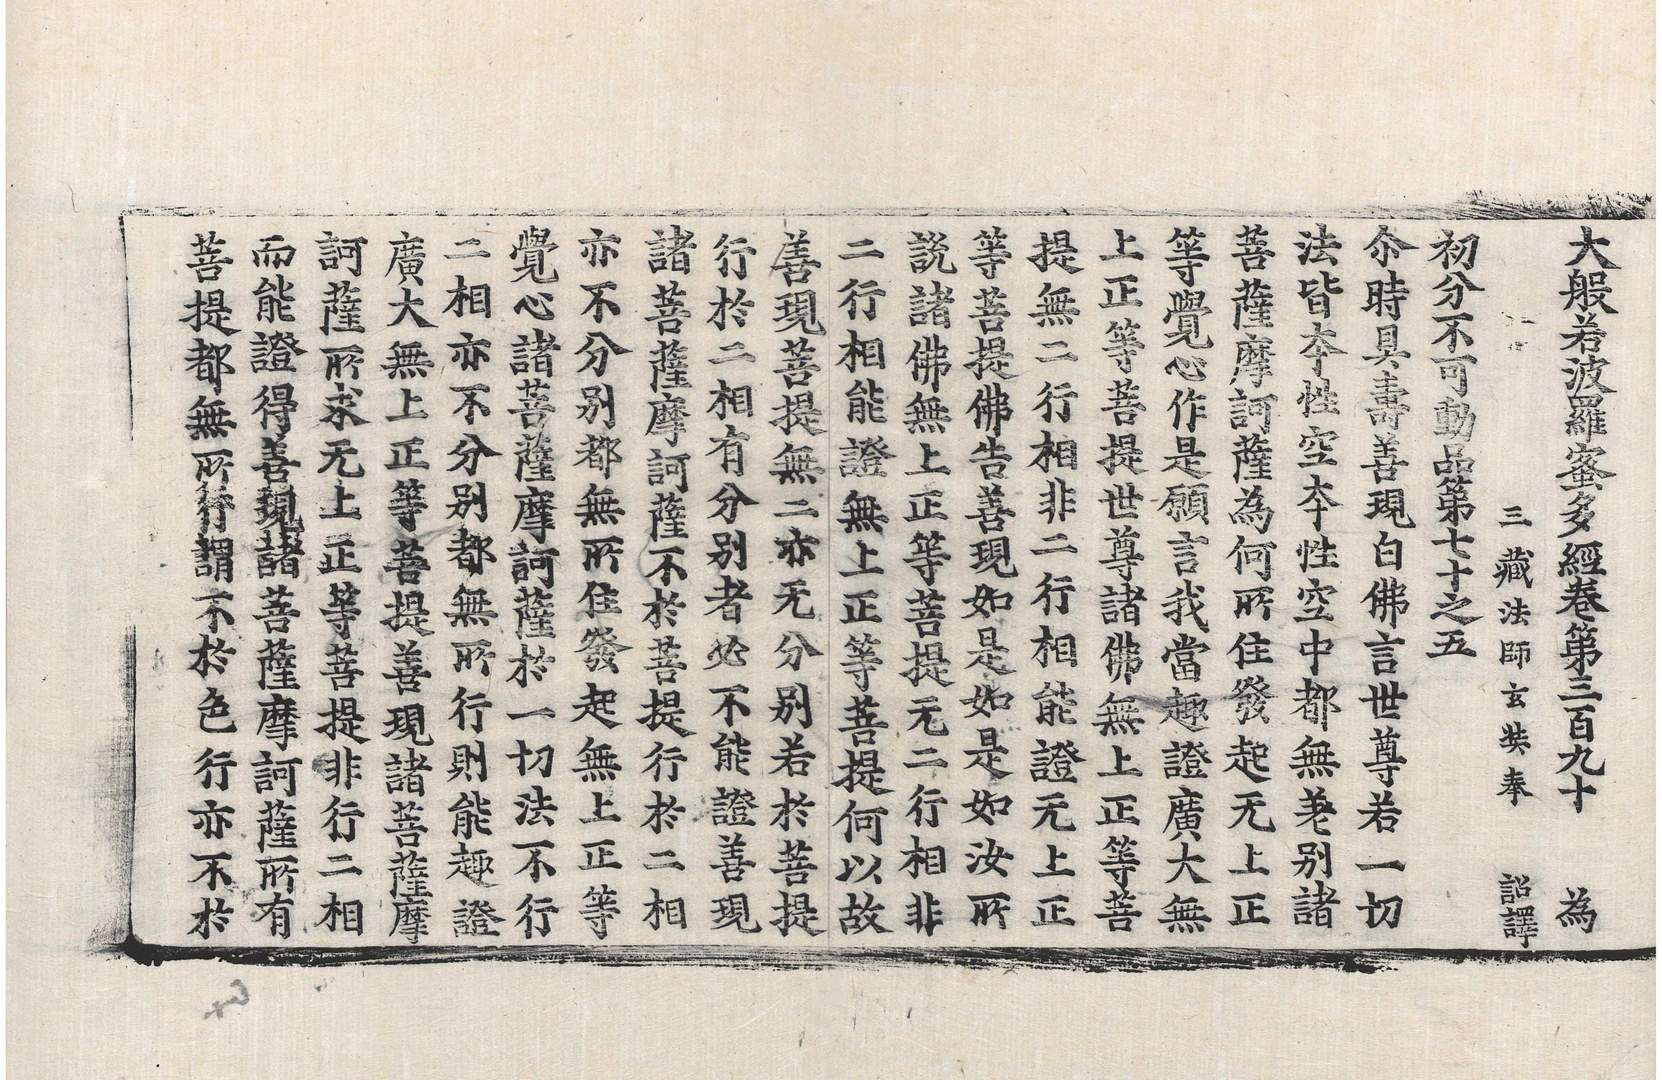 大般若波羅蜜多經卷第三百九十　為
三藏法師玄奘奉　詔譯
初分不可動品第七十之五
尒時具壽善現白佛言世尊若一切
法皆夲性空夲性空中都無差别諸
菩薩摩訶薩為何所住發起无上正
等覺心作是願言我當趣證廣大無
上正等菩提世尊諸佛無上正等菩
提無二行相非二行相能證无上正
等菩提佛告善現如是如是如汝所
説諸佛無上正等菩提无二行相非
二行相能證無上正等菩提何以故
善現菩提無二亦无分别若於菩提
行於二相有分别者必不能證善現
諸菩薩摩訶薩不於菩提行於二相
亦不分别都無所住發起無上正等
覺心諸菩薩摩訶薩於一切法不行
二相亦不分别都無所行則能趣證
廣大無上正等菩提善現諸菩薩摩
訶薩所求无上正等菩提非行二相
而能證得善現諸菩薩摩訶薩所有
菩提都無所行謂不於色行亦不於